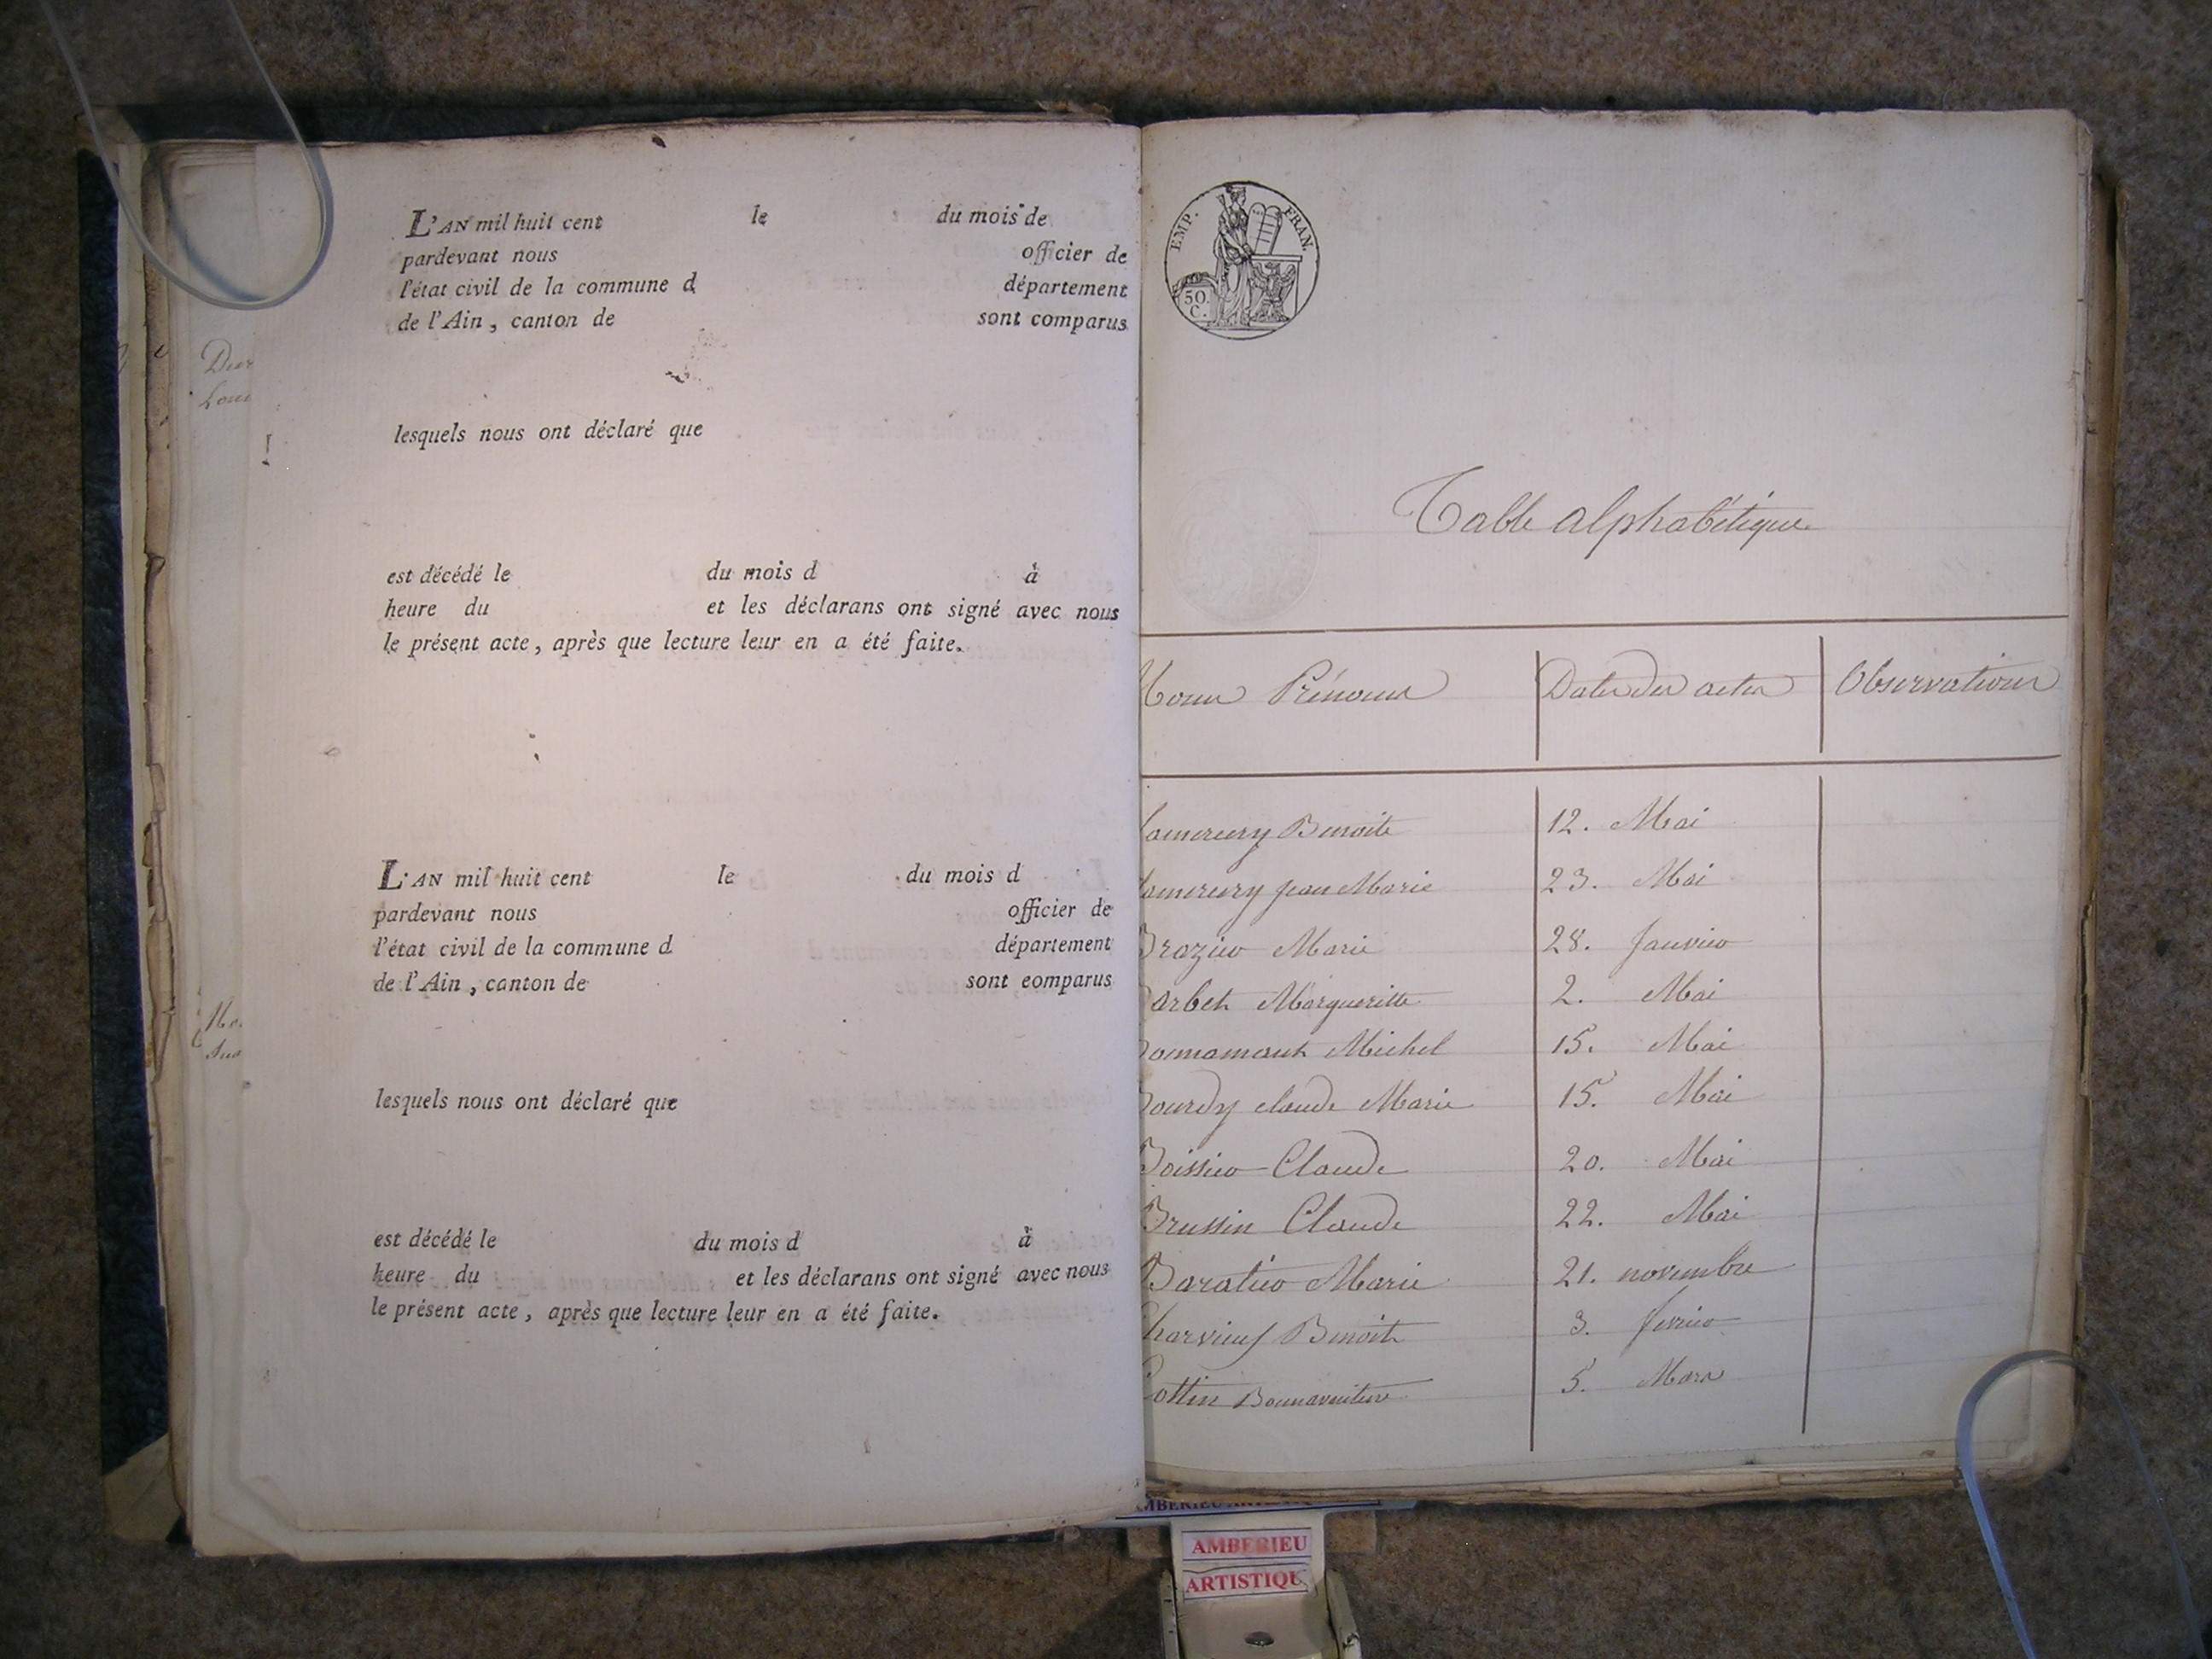 L'AN mil huit cent le du mois de
pardevant nous officier de
l'état civil de la commune d département
de l'Ain, canton de sont comparus
lesquels nous ont déclaré que
est décédé le du mois d à
heure du et les déclarans ont signé avec nous
le présent acte, après que lecture leur en a été faite.
L'AN mil huit cent le du mois d
pardevant nous officier de
l'état civil de la commune d département
de l'Ain, canton de sont eomparus
lesquels nous ont déclaré que
est décédé le du mois d à
heure du et les déclarans ont signé avec nous
le présent acte, après que lecture leur en a été faite.
EMP. FRAN.
50.
C.
Table alphabétique
Noms Prénoms Date des actes Observations
Benoite 12. Mai
jean Marie 23. Mai
Brazier Marie 28. Janvier
arbet Margueritte 2. Mai
Michel 15. Mai
ourdy claude Marie 15. Mai
Boissier Claude 20. Mai
Brussin Claude 22. Mai
Baratier Marie 21. novembre
Benoit 3. fevrier
ottin Bonnaventure 5. Mars
AMBERIEU
ARTISTIQU